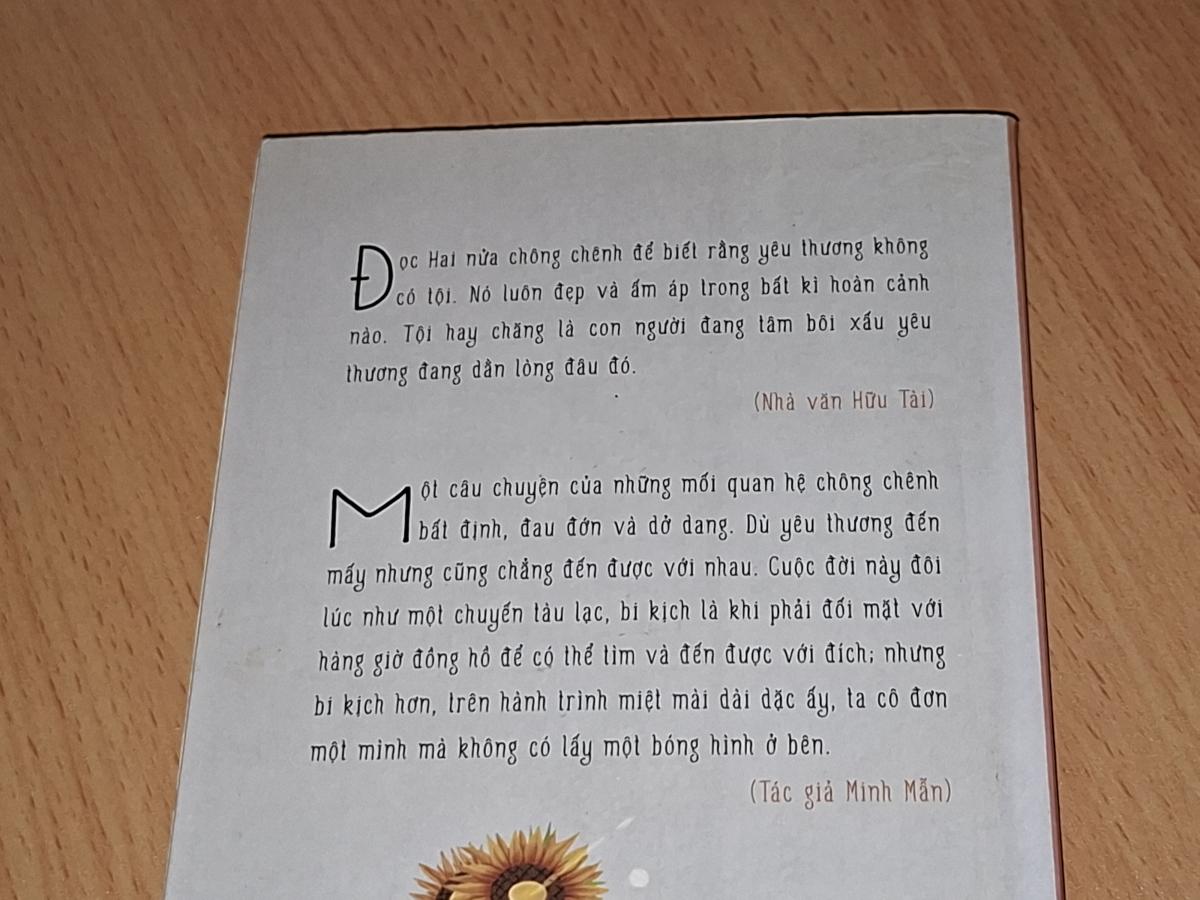 Đọc Hai nửa chông chênh để biết rằng yêu thương không
có tội. Nó luôn đẹp và ấm áp trong bất kì hoàn cảnh
nào. Tội hay chăng là con người đang tâm bôi xấu yêu
thương đang dằn lòng đâu đó.
(Nhà văn Hữu Tài)
Một câu chuyện của những mối quan hệ chông chênh
bất định, đau đớn và dở dang. Dù yêu thương đến
mấy nhưng cũng chẳng đến được với nhau. Cuộc đời này đôi
lúc như một chuyến tàu lạc, bi kịch là khi phải đối mặt với
hàng giờ đồng hồ để có thể tìm và đến được với đích; nhưng
bi kịch hơn, trên hành trình miệt mài dài dặc ấy, ta cô đơn
một mình mà không có lấy một bóng hình ở bên.
(Tác giả Minh Mẫn)